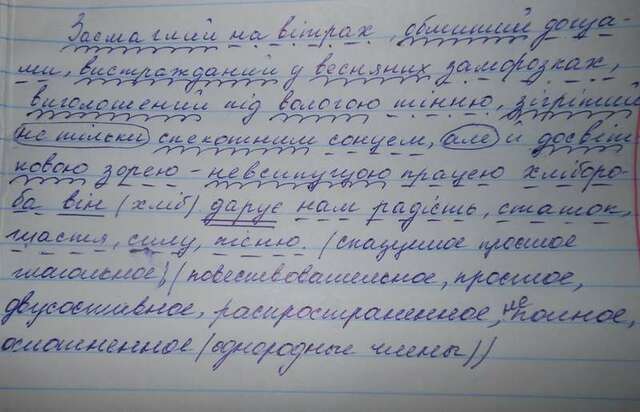 Засмаглий на вітрах, обмитий доща-
ми, вистражданий у весняних заморозках,
виголошений під вологою тінню, зігрітий
не тільки спекотним сонцем, але й досвіт
ковою зорею - невсипущою працею хліборо-
ба він (хліб) дарує нам радість, статок,
щастя, силу, пісню. (сказуемое простое
глагольное) (повествовательное, простое,
двусоставное, распространенное, не полное,
осложненное (однородные члены))